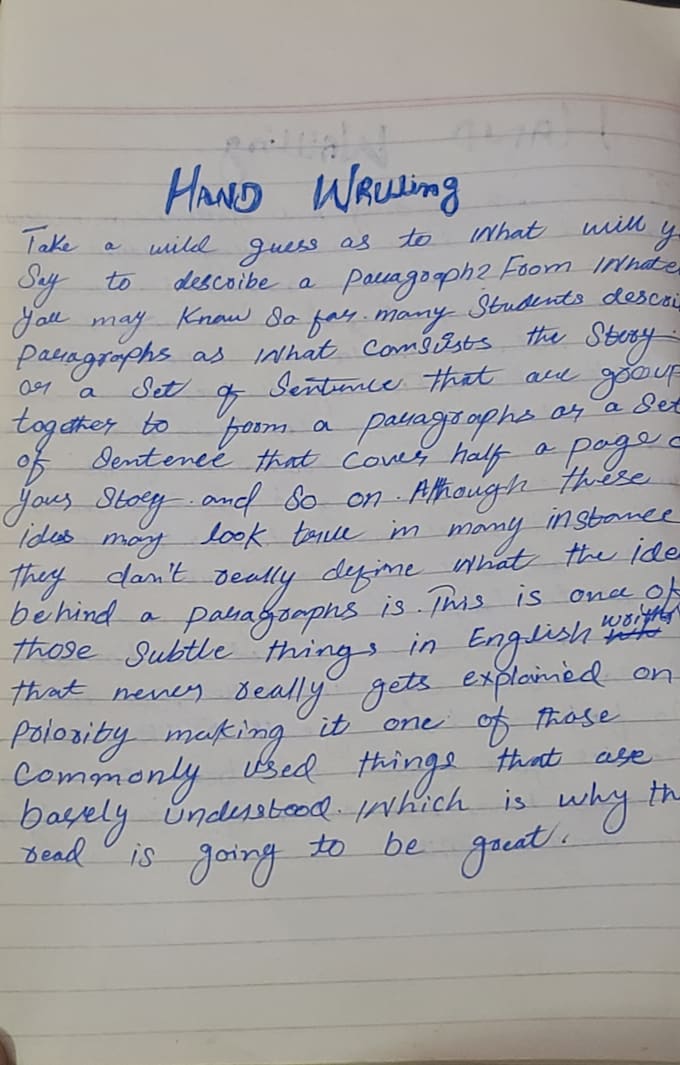 HAND WRITING
Take a wild guess as to what will y
Say to describe a paragraph? From whate
you may know so far. many students descri
paragraphs as what consists the story.
or a set of sentence that are group
together to form a paragraphs or a set
of sentence that cover half a page o
your story. and so on. Although these
ides may look true in many instance
they don't really define what the ide
behind a paragraphs is. This is one of
those subtle things in English
that never really gets explained on
priority making it one of those
commonly used things that are
barely understood. Which is why th
read is going to be great.